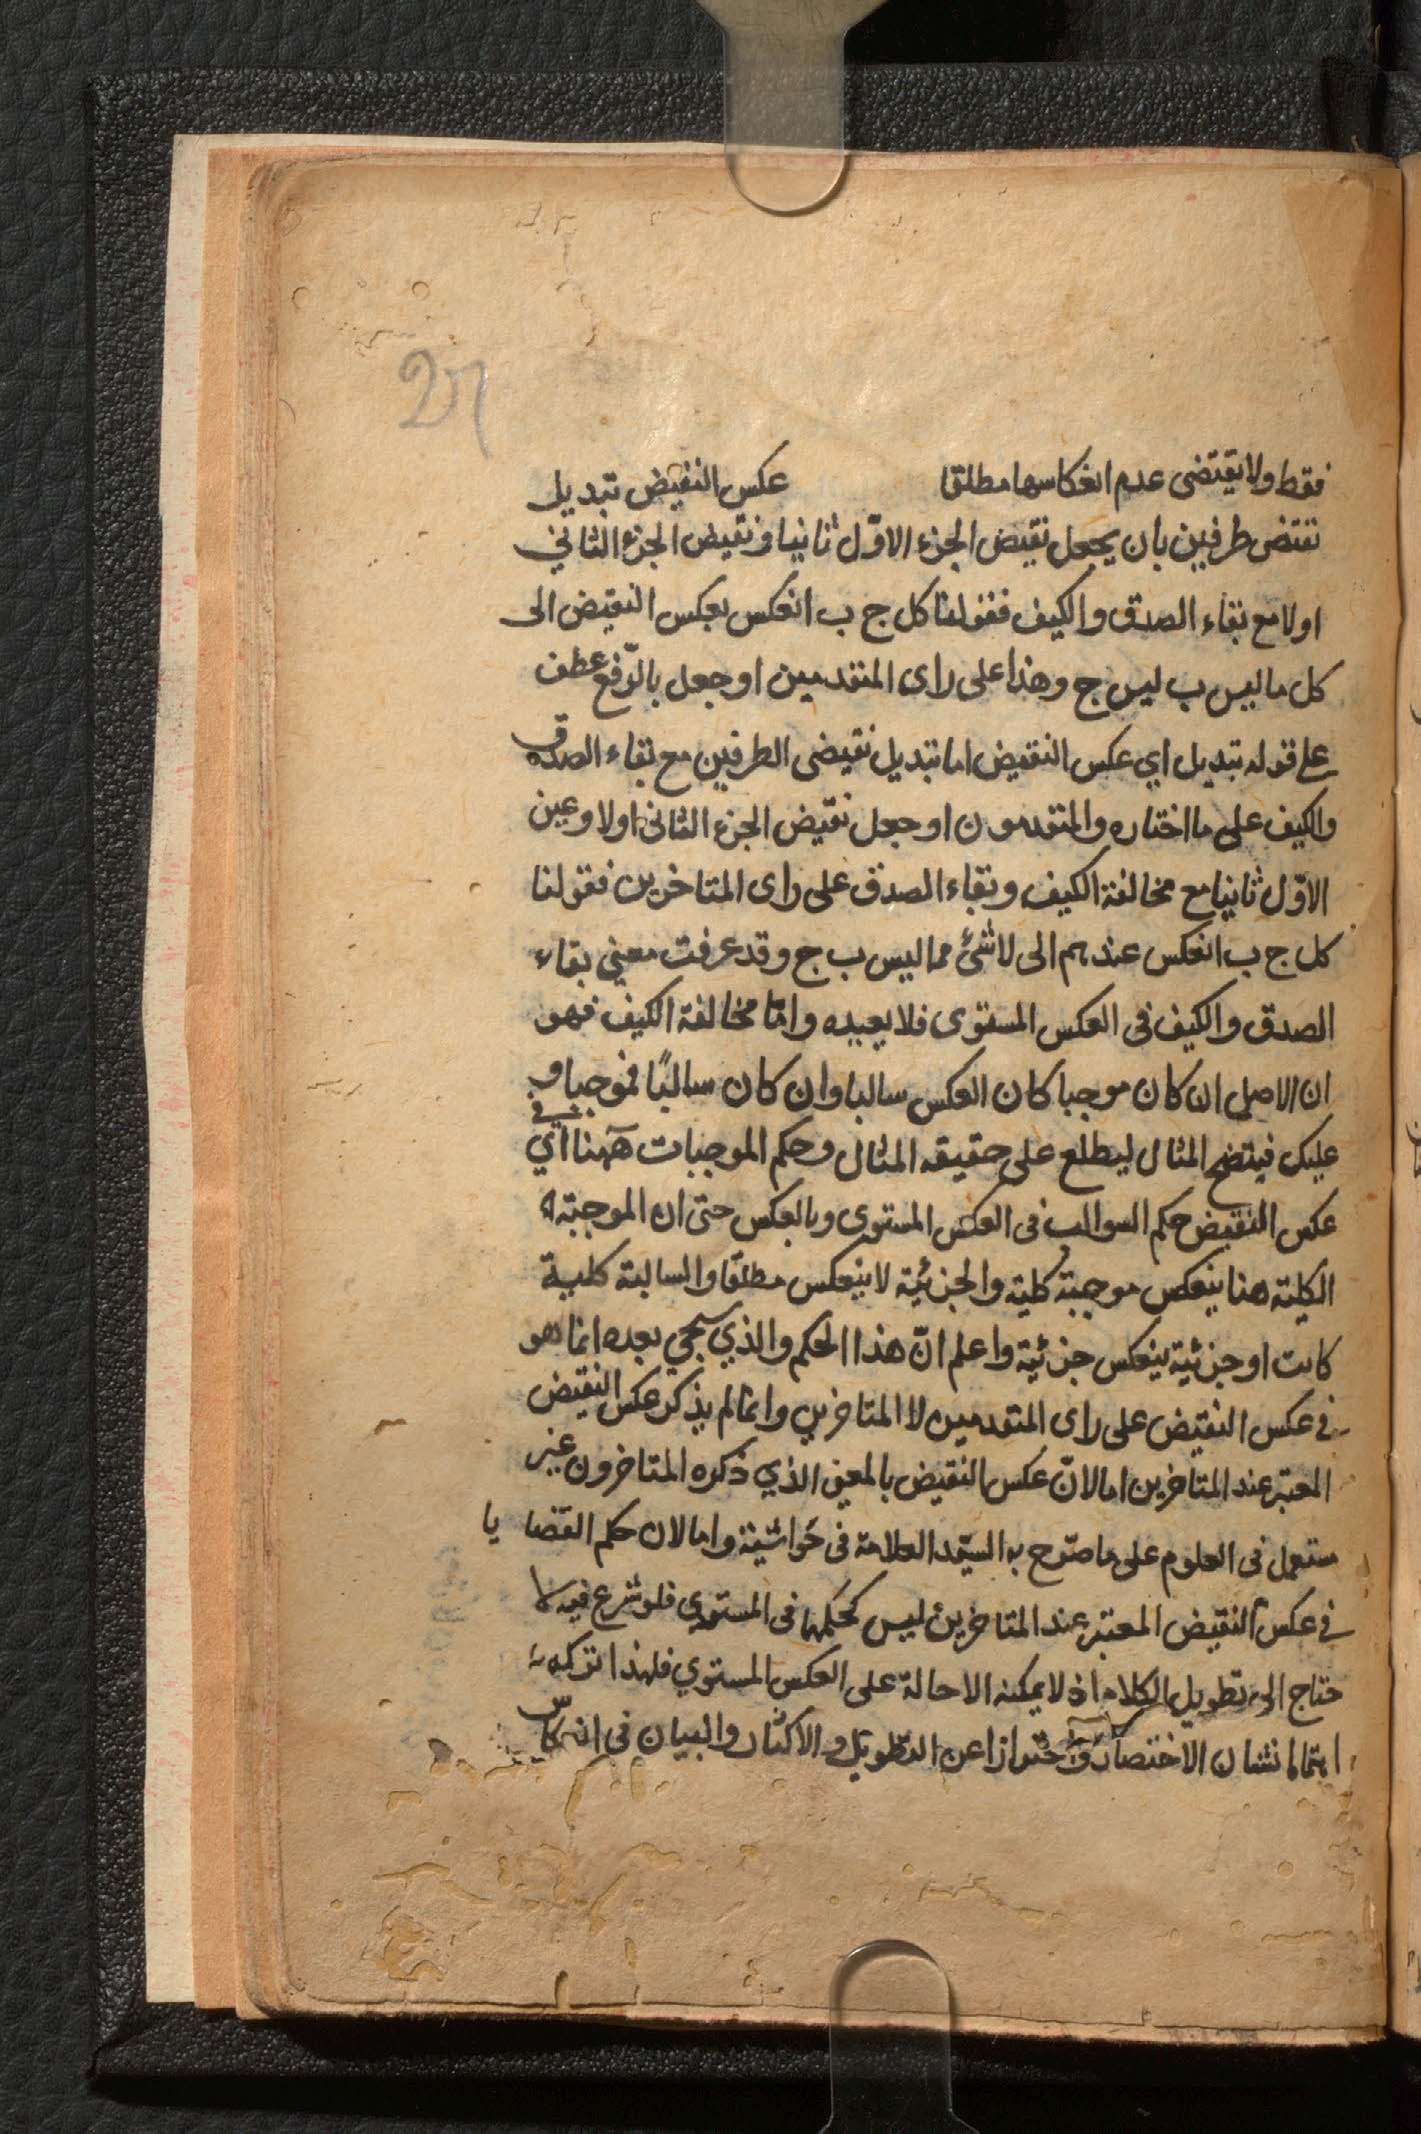 21
فقط ولا يقتضى عدم انعكاسها مطلقا عكس النقيض تبديل
نقتضى طرفين بان يجعل نقيض الجزء الاوّل ثانيا ونقيض الجزء الثاني
اولا مع بقاء الصدق والكيف فقولنا كل ج ب انعكس بعكس النقيض الى
كل ما ليس ب ليس ج وهذا على راى المتقدمين او جعل بالرّفع عطف
على قوله تبديل اي عكس النقيض اما تبديل نقيضى الطرفين مع بقاء الصدق
والكيف على ما اختاره والمتقدمون او جعل نقيض الجزء الثانى اولا وعين
الاوّل ثانيا مع مخالفة الكيف وبقاء الصدق على راى المتاخرين فقولنا
كل ج ب انعكس عندهم الى لا شئ مما ليس ب ج وقد عرفت معني بقاء
الصدق والكيف فى العكس المستوى فلا يعيده وامّا مخالفة الكيف فهو
ان الاصل ان كان موجبا كان العكس سالبا وان كان سالبًا فموجبا و
عليك فيتضح المثال ليطلع على حقيقه المثال وحكم الموجبات ههنا اي في
عكس النقيض حكم السوالب فى العكس المستوى وبالعكس حتى ان الموجبة
الكلية هنا ينعكس موجبة كلية والجزئية لا ينعكس مطلقا والسالبة كلية
كانت او جزئية ينعكس جزئية واعلم انّ هذا الحكم والذي سيجى بعده انما هو
في عكس النقيض على راى المتقدمين لا المتاخرين وانما لم يذكر عكس النقيض
المعتبر عند المتاخرين اما لانّ عكس النقيض بالمعني الذي ذكره المتاخرون غير
مستعمل فى العلوم على ما صرّح به السيّد العلامة فى حواشيه واما لان حكم القضا يا
في عكس النقيض المعتبر عند المتاخرين ليس كحكمها فى المستوى فلو شرع فيه لا
حتاج الى تطويل الكلام اذ لا يمكنه الاحالة على العكس المستوي فلهذا تركه
اهتماما بشان الاختصار واحترازا عن التطويل والاكثار والبيان فى انعكاس